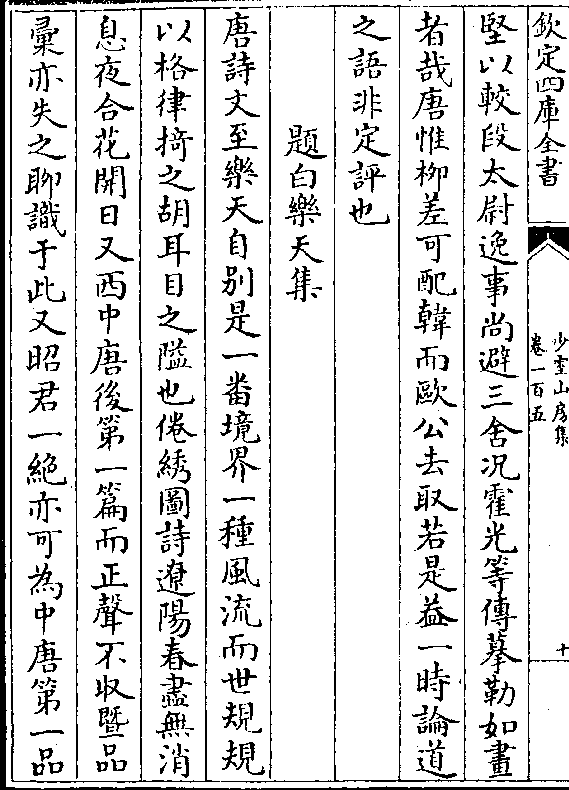 欽定四庫全書
少室山房集
卷一百五
十
堅以較段太尉逸事尚避三舍况霍光等傳摹勒如畫
者哉唐惟柳差可配韓而歐公去取若是益一時論道
之語非定評也
題白樂天集
唐詩文至樂天自别是一番境界一種風流而世規規
以格律掎之胡耳目之隘也倦綉圖詩遼陽春盡無消
息夜合花開日又西中唐後第一篇而正聲不收暨品
彚亦失之聊識于此又昭君一絶亦可為中唐第一品